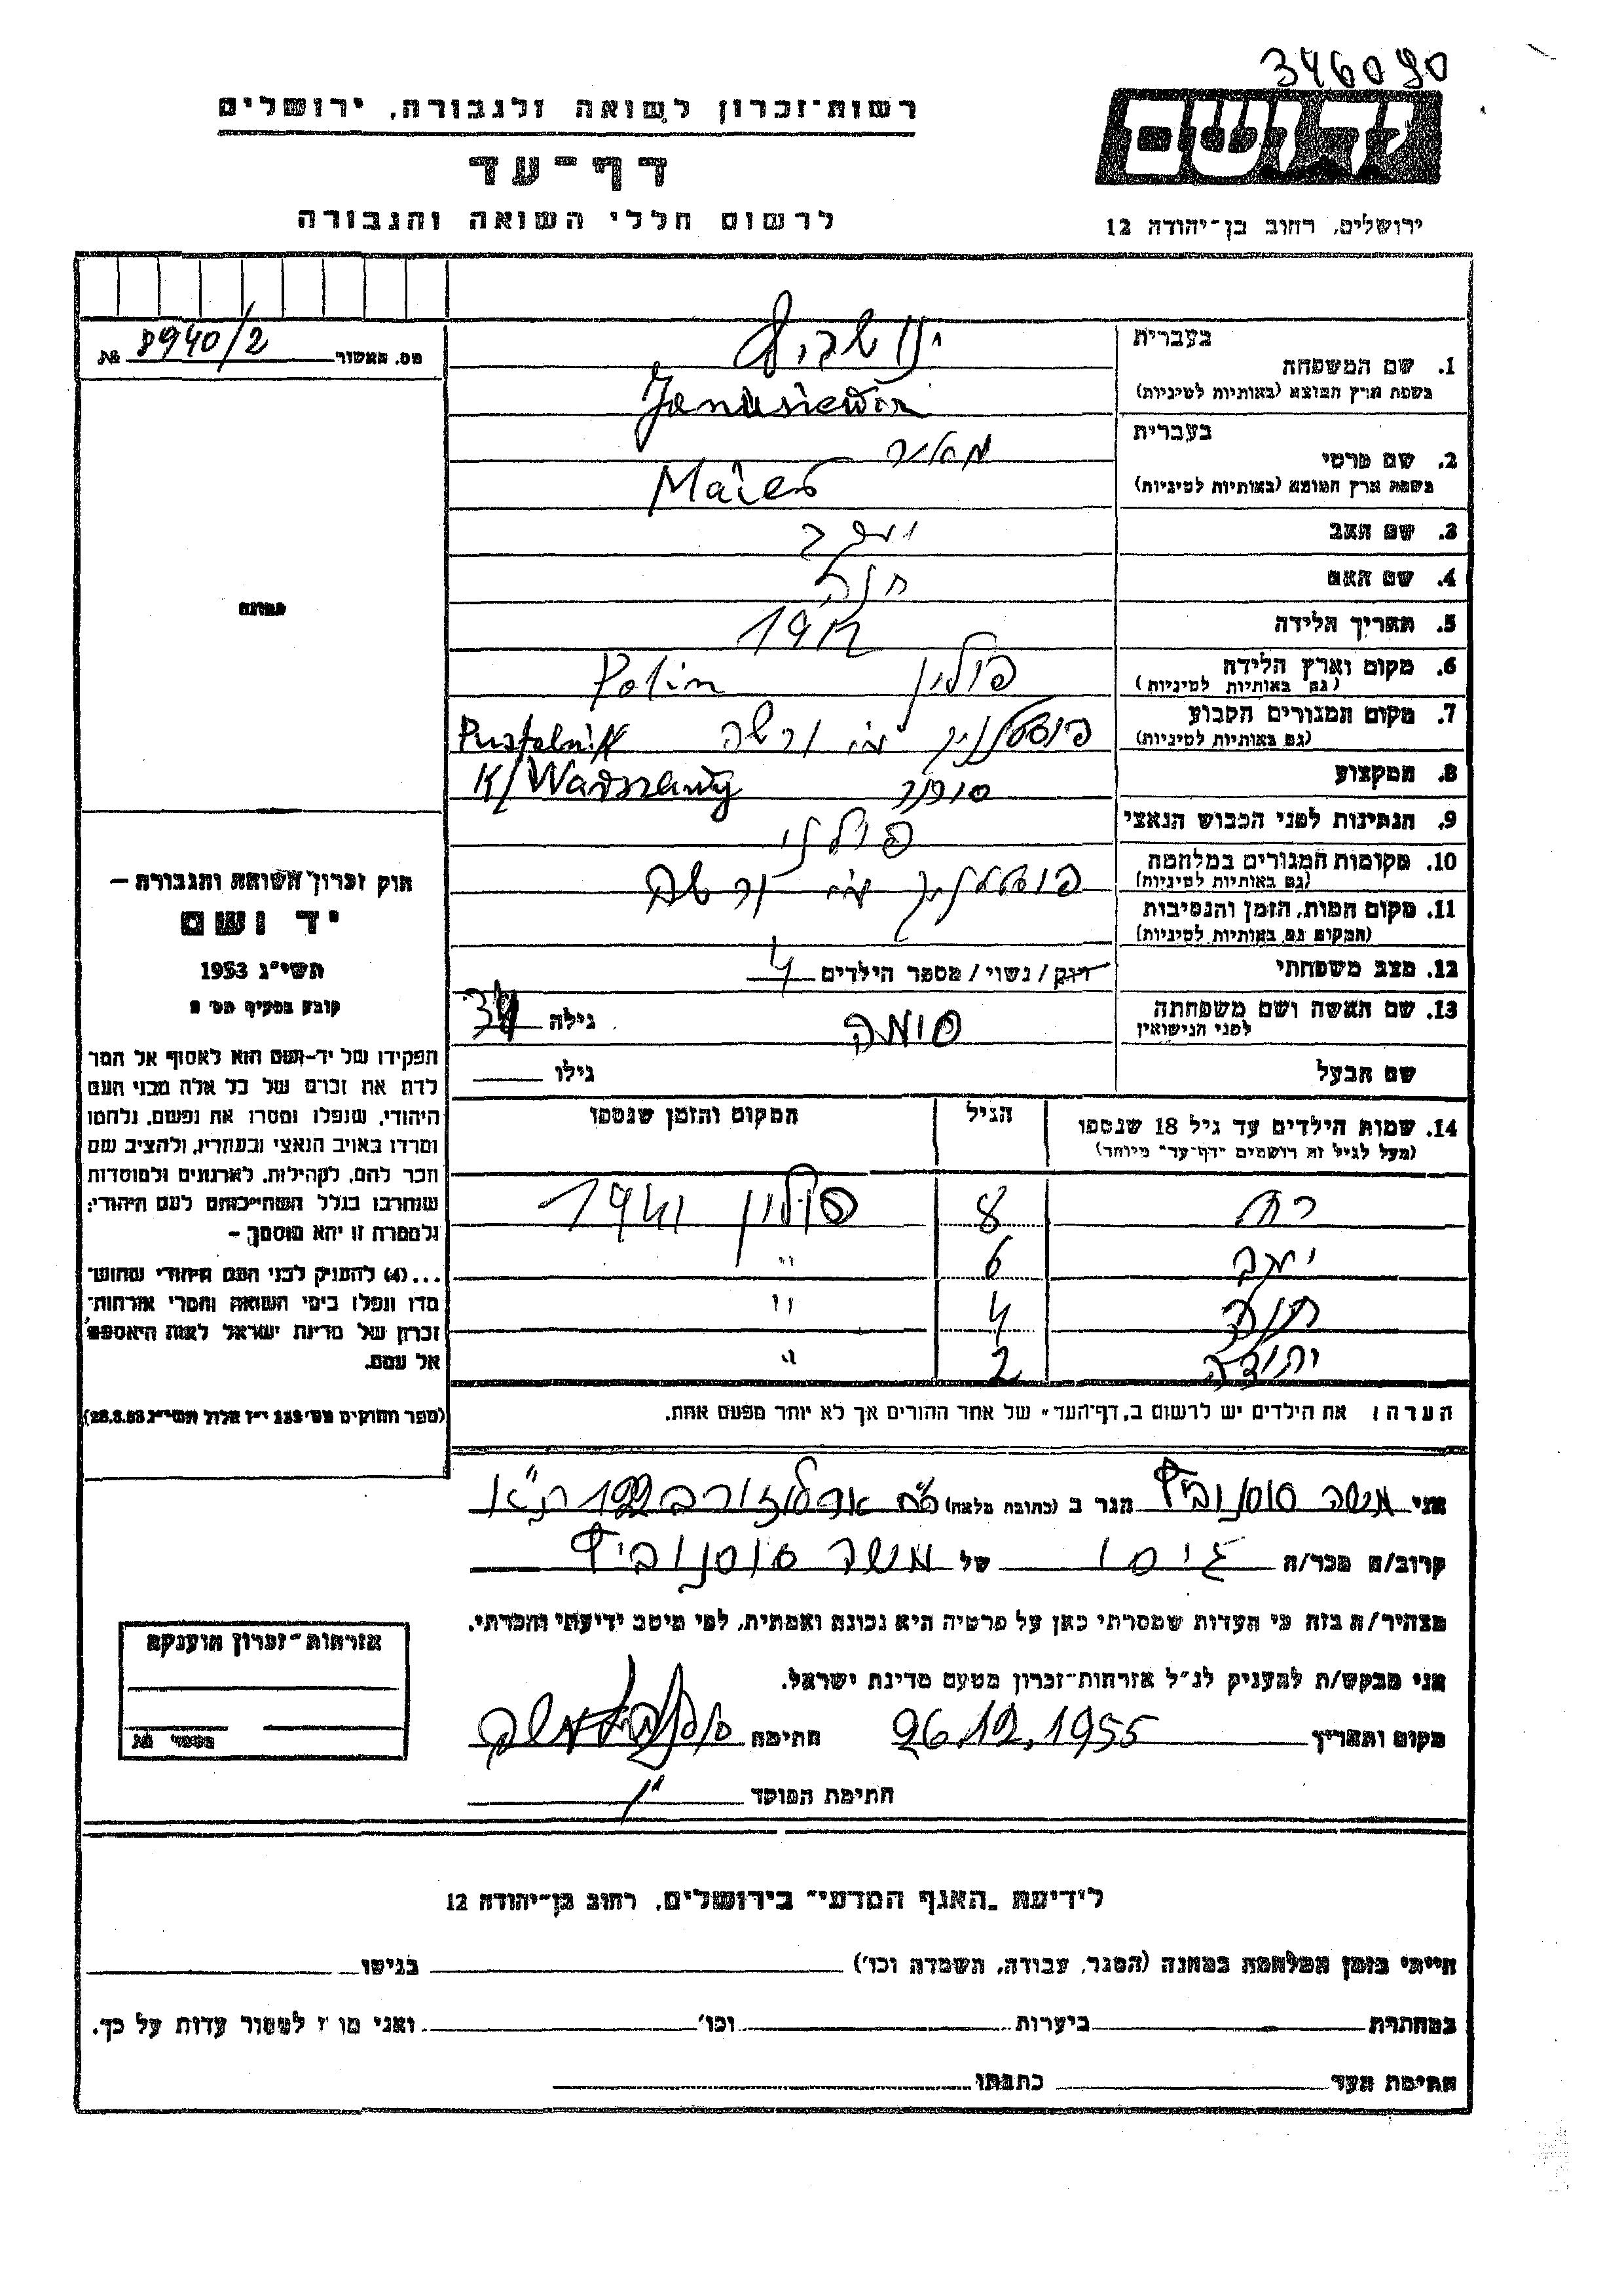 346090
רשות־זכרון לשואה ולגבורה, ירושלים
יד ושם
דף־עד
לרשום חללי השואה והגבורה
ירושלים, רחוב בן־יהודה 12
מס. האשור 8940/2 №
בעברית
1. שם המשפחה
בשפת ארץ המוצא (באותיות לטיניות)
בעברית
2. שם פרטי מאיר
בשפת ארץ המוצא (באותיות לטיניות)
3. שם האב יעקב
4. שם האם חנה
5. תאריך הלידה 1912
6. מקום וארץ הלידה פולין Polin
(גם באותיות לטיניות)
7. מקום המגורים הקבוע פוסטלניק ע״י ורשה Pustelnik
(גם באותיות לטיניות) K/Warszawy
8. המקצוע סוחר
9. הנתינות לפני הכבוש הנאצי פולני
10. מקומות המגורים במלחמה פוסטלניק ע״י ורשה
(גם באותיות לטיניות)
11. מקום המות, הזמן והנסיבות
(המקום גם באותיות לטיניות)
12. מצב משפחתי רוק / נשוי / מספר הילדים 4
13. שם האשה ושם משפחתה גילה
לפני הנישואין
שם הבעל גילו
14. שמות הילדים עד גיל 18 שנספו הגיל המקום והזמן שנספו
(מעל לגיל זה רושמים "דף־עד" מיוחד)
רחל 8 פולין 1941
יעקב 6 "
חנה 4 "
יהודה 2 "
הערה: את הילדים יש לרשום ב"דף־העד" של אחד ההורים אך לא יותר מפעם אחת.
תמונה
חוק זכרון השואה והגבורה —
יד ושם
תשי"ג 1953
קובע בסעיף מס' 2
תפקידו של יד־ושם הוא לאסוף אל המולדת את זכרם של כל אלה מבני העם
היהודי, שנפלו ומסרו את נפשם, נלחמו
ומרדו באויב הנאצי ובעוזריו, ולהציב שם
וזכר להם, לקהילות, לארגונים ולמוסדות
שנחרבו בגלל השתייכותם לעם היהודי;
ולמטרה זו יהא מוסמך —
...(4) להעניק לבני העם היהודי שהוש־
מדו ונפלו בימי השואה והמרי אזרחות־
זכרון של מדינת ישראל לאות היאספם
אל עמם.
(ספר החוקים מס' 132 י"ז אלול תשי"ג 28.8.53)
אני משה סוסנוביץ הגר ב (כתובת מלאה) רח' ארלוזורוב 122 ת"א
קרוב/ה מכר/ה גיסו של משה סוסנוביץ
מצהיר/ה בזה כי העדות שמסרתי כאן על פרטיה היא נכונה ואמתית, לפי מיטב ידיעתי והכרתי.
אני מבקש/ת להעניק לנ"ל אזרחות־זכרון מטעם מדינת ישראל.
מקום ותאריך 26.12.1955 חתימה
חתימת המוסד
אזרחות־זכרון הוענקה
מספר №
לידיעת "האגף המדעי" בירושלים, רחוב בן־יהודה 12
הייתי בזמן המלחמה במחנה (הסגר, עבודה, השמדה וכו') בגיטו
במחתרת ביערות וכו' ואני מוכן למסור עדות על כך.
חתימת העד כתבתו